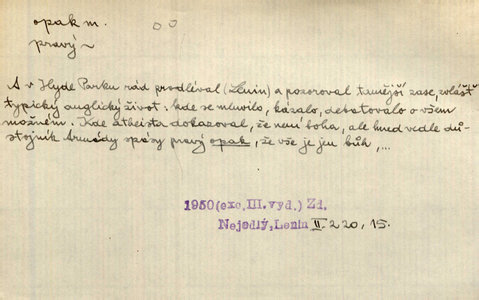 opak m.
pravý ~
A v Hyde Parku rád prodléval (Lenin) a pozoroval tamější zase zvlášť
typický anglický život: kde se mluvilo, kázalo, debatovalo o všem
možném. Kde atheista dokazoval, že není boha, ale hned vedle dů-
stojník Armády spásy pravý opak, že vše je jen bůh,...
1950(exc.III.vyd.) Zd.
Nejedlý, Lenin II. 220, 15.